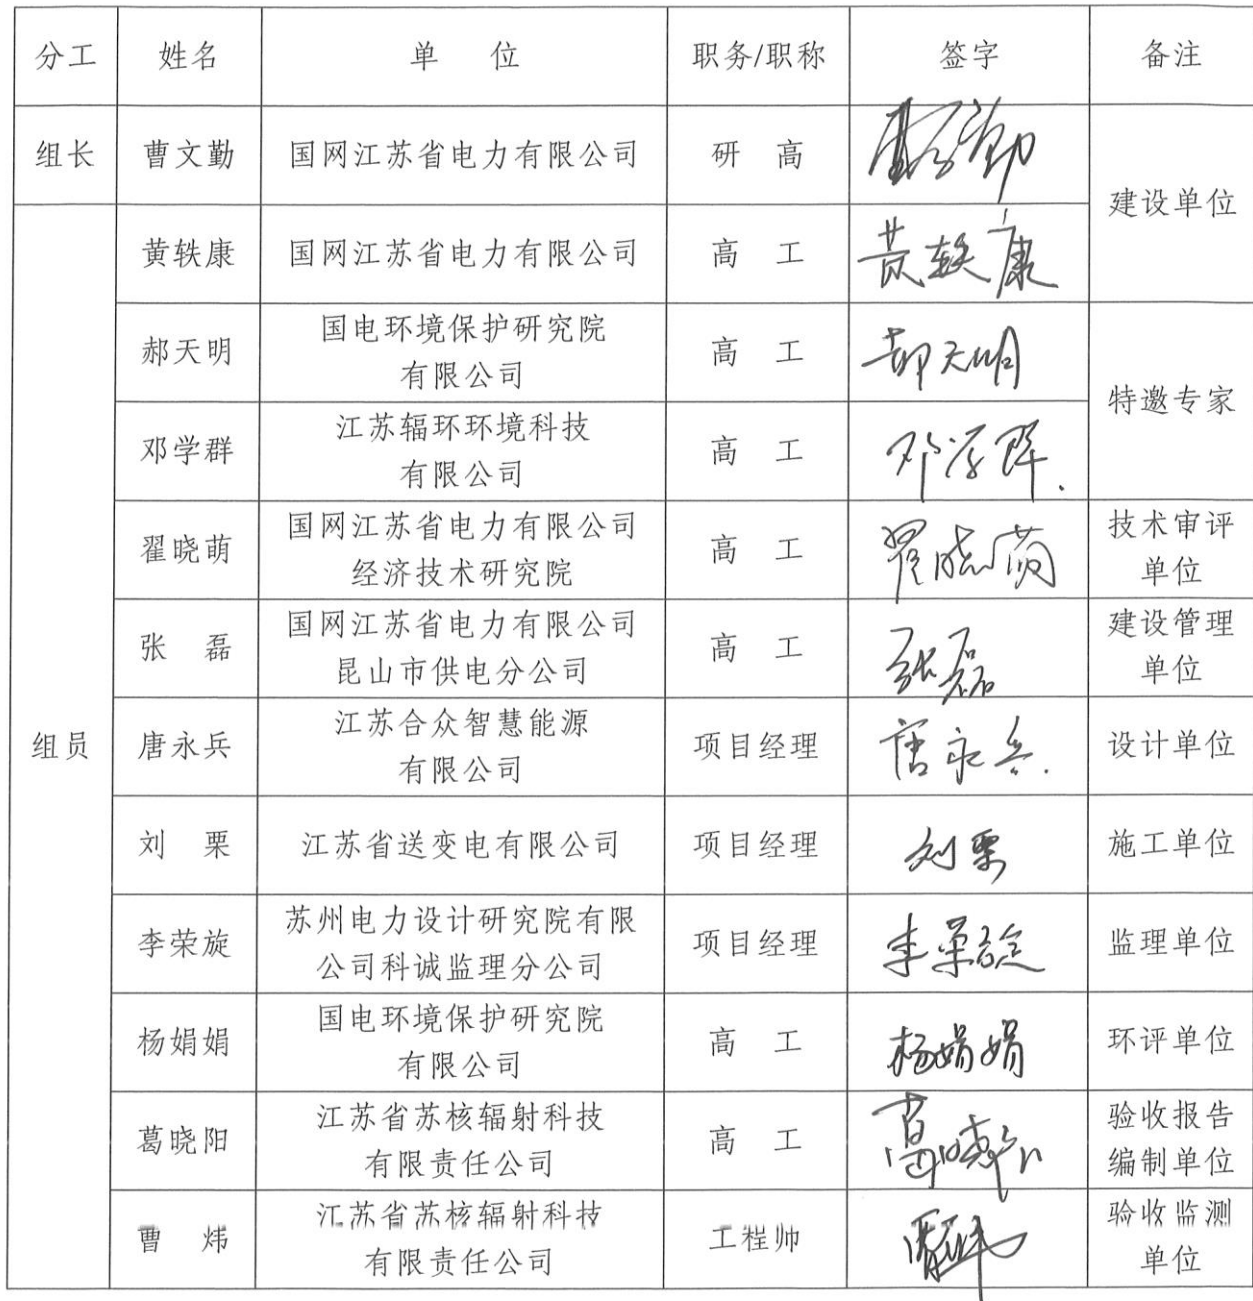 分工 姓名 单 位 职务/职称 签字 备注
组长 曹文勤 国网江苏省电力有限公司 研 高 曹文勤
建设单位
黄轶康 国网江苏省电力有限公司 高 工 黄轶康
郝天明 国电环境保护研究院
有限公司 高 工 郝天明
特邀专家
邓学群 江苏辐环环境科技
有限公司 高 工 邓学群
翟晓萌 国网江苏省电力有限公司
经济技术研究院 高 工 翟晓萌 技术审评
单位
张 磊 国网江苏省电力有限公司
昆山市供电分公司 高 工 张磊 建设管理
单位
组员 唐永兵 江苏合众智慧能源
有限公司 项目经理 唐永兵 设计单位
刘 栗 江苏省送变电有限公司 项目经理 刘栗 施工单位
李荣旋 苏州电力设计研究院有限
公司科诚监理分公司 项目经理 李荣旋 监理单位
杨娟娟 国电环境保护研究院
有限公司 高 工 杨娟娟 环评单位
葛晓阳 江苏省苏核辐射科技
有限责任公司 高 工 葛晓阳 验收报告
编制单位
曹 炜 江苏省苏核辐射科技
有限责任公司 工程师 曹炜 验收监测
单位